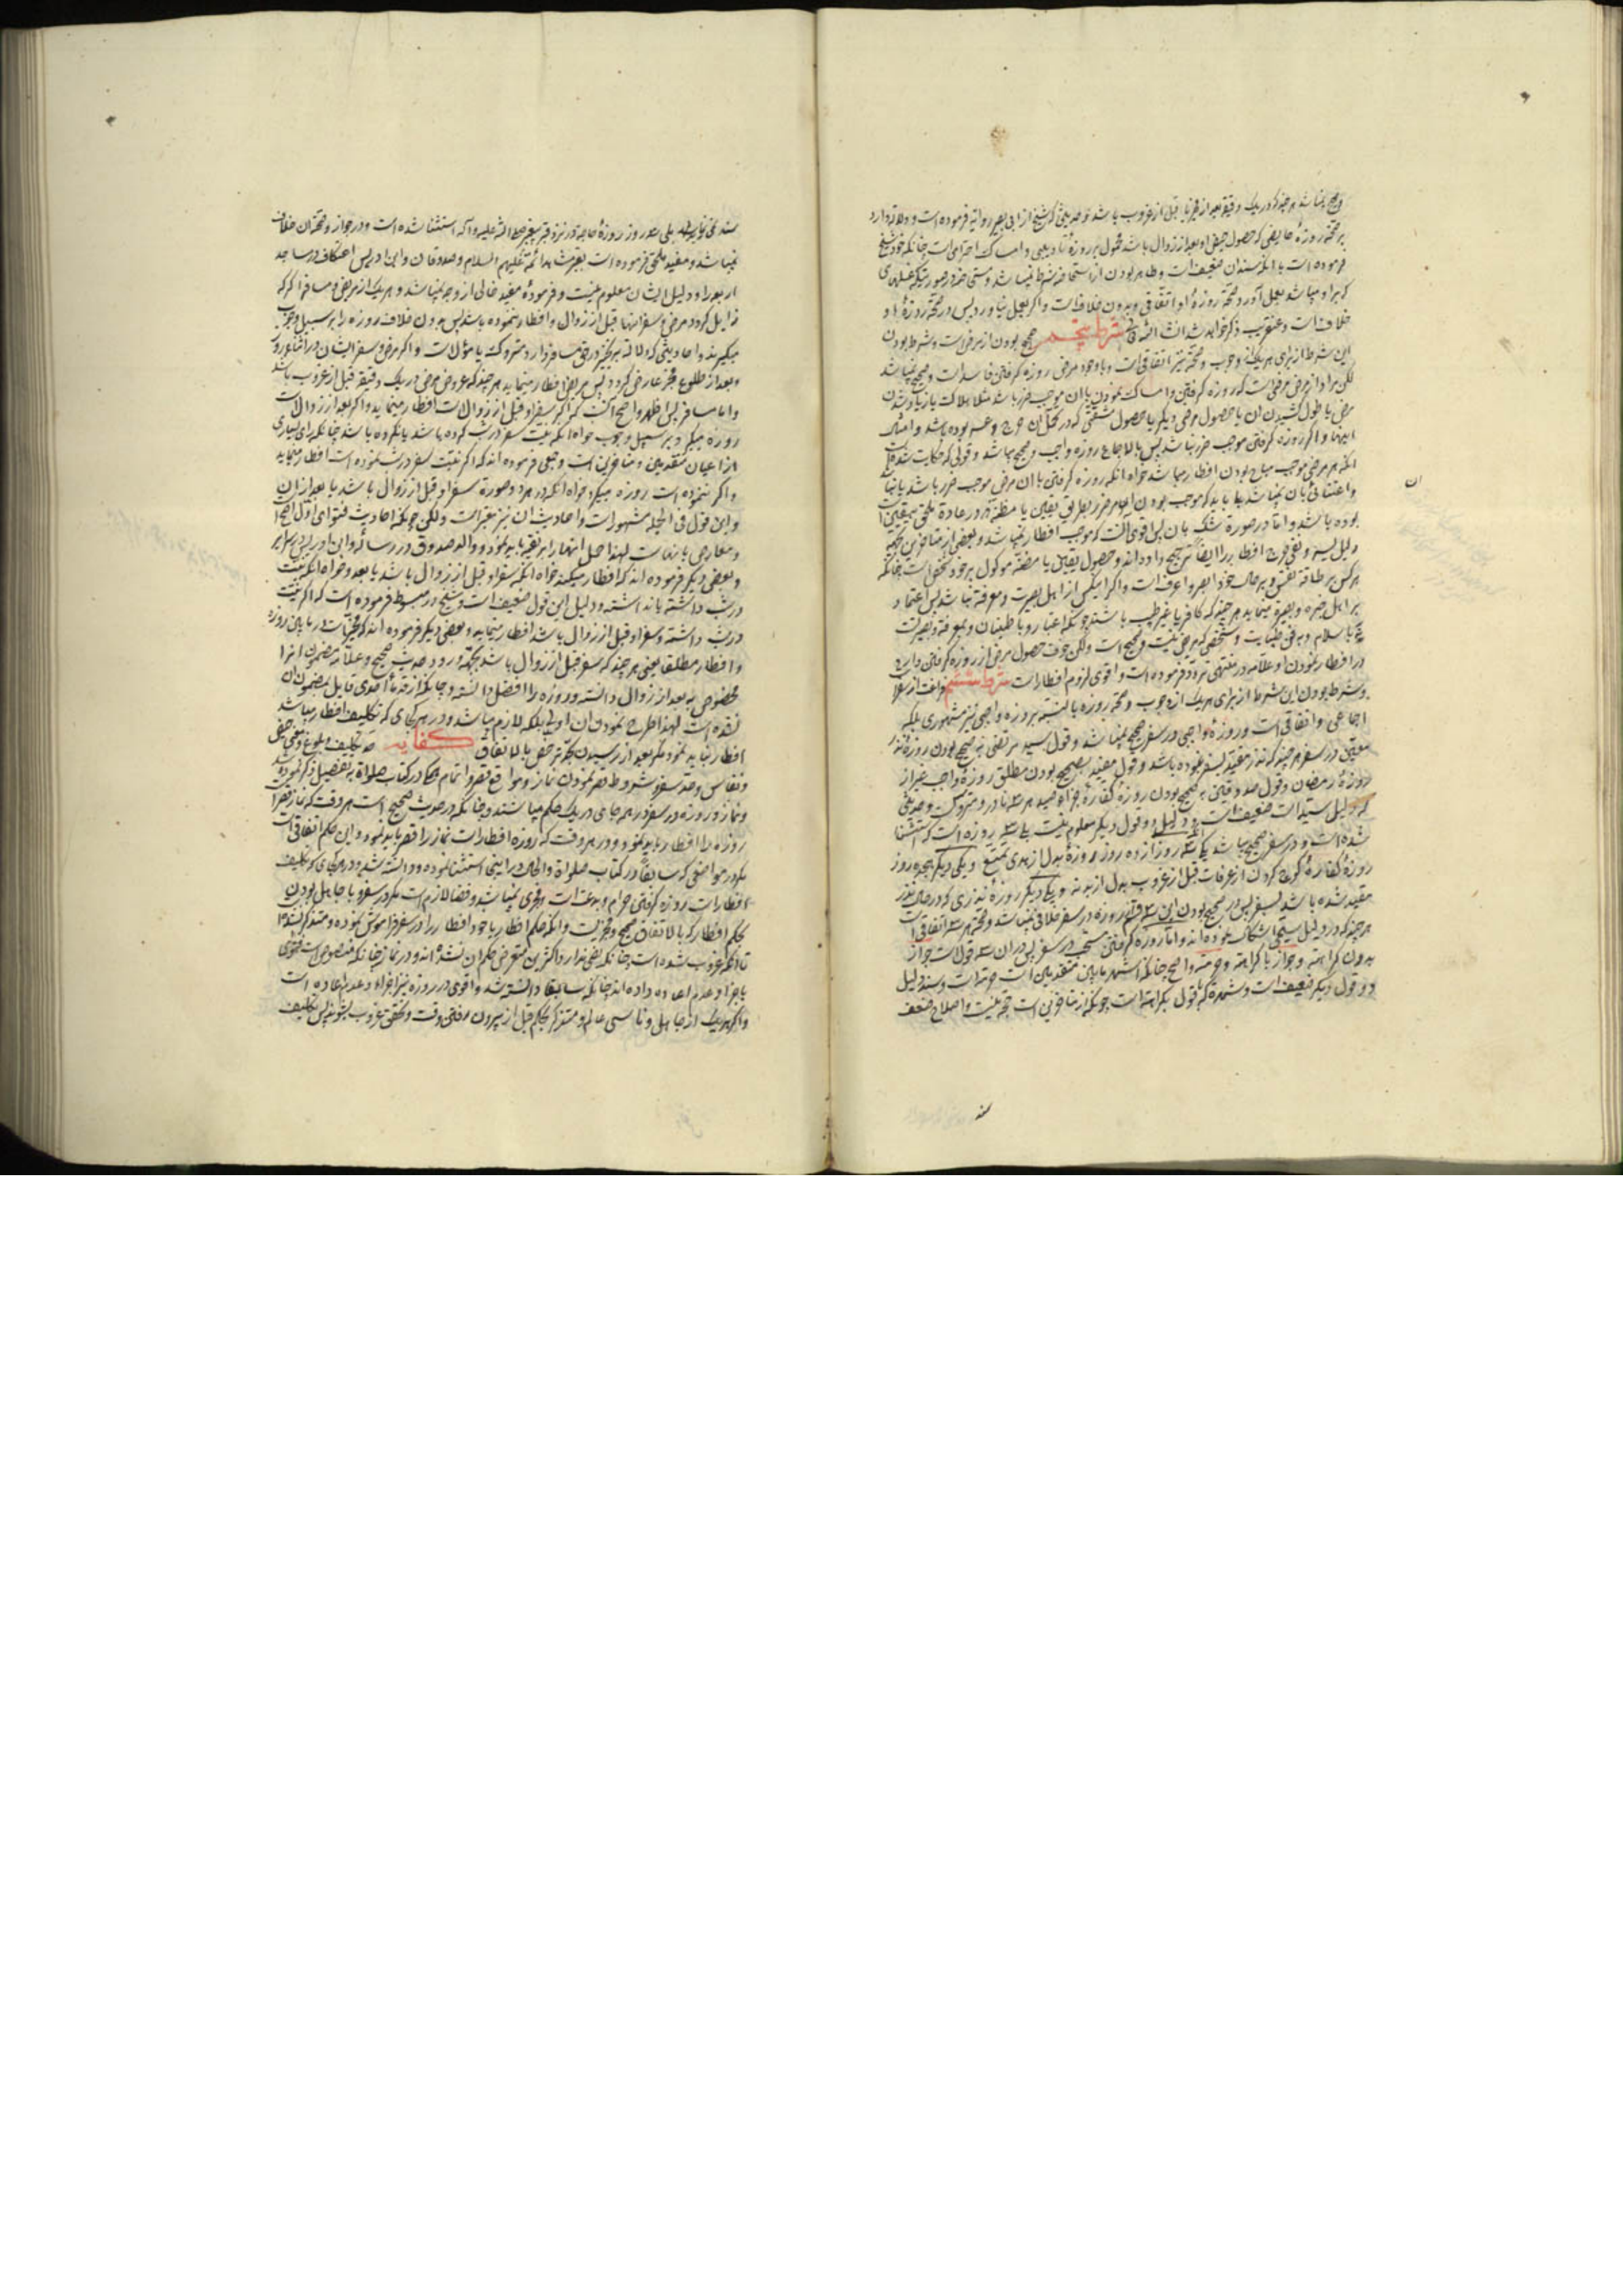 و صحیح نمیباشد هر چند که در یک دقیقه بعد از فجر یا قبل از غروب باشد و حدیثی که شیخ از ابی بصیر روایة فرموده است و دلالة دارد
بر صحّة روزهٔ حایضی که حصول حیض او بعد از زوال باشد محمول بر روزهٔ تادیبی و امساک احترامی است چنانکه خود شیخ
فرموده است با آنکه سند آن ضعیف است و طاهر بودن از استحاضه شرط نمیباشد و مستحاضه در صورتیکه غسلهای
که بر او میباشد بعمل آورد صحّة روزهٔ او اتفاقی و بدون خلاف است و اگر بعمل نیاورد پس در صحّة روزهٔ او
خلاف است و عنقریب ذکر خواهد شد انشاء الله تعالی شرط پنجم صحیح بودن از مرض است و شرط بودن
این شرط از برای هریک از وجوب و صحّة نیز اتفاقی است و با وجود مرض روزه گرفتن فاسد است و صحیح نمیباشد
لکن مراد از مرض مرضی است که روزه گرفتن و امساک نمودن با آن موجب ضرر باشد مثلا هلاکت یا زیاد شدن
مرض یا طول کشیدن آن یا حصول مرض دیگر یا حصول مشقّتی که در تحمّل آن حرج و عسر بوده باشد و امثال
اینها و اگر روزه گرفتن موجب ضرر نباشد پس بالاجماع روزه واجب و صحیح میباشد و قولی که حکایت شده است
آنکه هر مرضی موجب مباح بودن افطار میباشد خواه آنکه روزه گرفتن با آن مرض موجب ضرر باشد یا نباشد
و اعتنائی بآن نمیباشد
بوده باشد و امّا در صورة شک بآن پس اقوی آنست که موجب افطار نمیباشد و بعضی از متاخرین بجهة
دلیل یسر و نفی حرج افطار را ایضا ترجیح داده اند و حصول یقین یا مظنّه موکول بر خود شخص است چنانکه
هر کس بر طاقة نفس و بر حال خود ابصر و اعرف است و اگر آنکس از اهل بصیرت و معرفة نباشد پس اعتماد
بر اهل خبره و بصیرة مینماید هر چند که کافر یا غیر طبیب باشند چونکه اعتبار و با طمینان و بمعرفة و بصیرتست
نه باسلام و به فن طبابت و شخصی که مریض نیست و صحیح است ولکن خوف حصول مرض از روزه گرفتن دارد
در افطار نمودن او علامه در منتهی تردّد فرموده است و اقوی لزوم افطار است شرط ششم فراغت از سفر
و شرط بودن این شرط از برای هریک از وجوب و صحّة روزه بالنسبة بروزهٔ واجبی نیز مشهوری بلکه
اجماعی و اتفاقی است و روزهٔ واجبی در سفر صحیح نمیباشد و قول سید مرتضی به صحیح بودن روزهٔ نذر
معیّن در سفر هر چند که نذر مقیّد بسفر نبوده باشد و قول مفید به صحیح بودن مطلق روزهٔ واجب غیر از
روزهٔ رمضان و قول صدوقین به صحیح بودن روزهٔ کفارهٔ جزاء صید هر سه نادر و متروکست و حدیثی
که دلیل سیّد است ضعیف است و دلیل دو قول دیگر معلوم نیست بلی سه روزه است که استثنا
شده است و در سفر صحیح میباشد یکی سه روز از ده روز روزهٔ بدل از هدی تمتع و یکی دیگر هیجده روز
روزهٔ کفارهٔ کوچ کردن از عرفات قبل از غروب بدل از بدنه و یکی دیگر روزهٔ نذری که در حال نذر
مقیّد شده باشد بسفر پس در صحیح بودن این سه قسم روزه در سفر خلافی نمیباشد و صحّة هر سه اتفاقی است
هر چند که در دلیل سیّمی اشکال نموده اند و امّا روزه گرفتن مستحب در سفر پس در آن سه قولست جواز
بدون کراهة و جواز با کراهة و حرمة و اصح چنانکه اشهر مابین متقدمین است حرمة است و سند دلیل
دو قول دیگر ضعیف است و شهرة که بقول بکراهة است چونکه از متاخرین است حجة نیست و اصلاح ضعف
سند
ان
سند نمی نماید بلی سه روز روزهٔ حاجة در نزد قبر پیغمبر صلی الله علیه و آله استثنا شده است و در جواز و صحّة آن خلاف
نمیباشد و مفید ملحق فرموده است بقبر مشاهد ائمه علیهم السلام و صدوقان و ابن ادریس اعتکاف در مساجد
اربعه را و دلیل ایشان معلوم نیست و فرمودهٔ مفید خالی از وجه نمیباشد و هر یک از مریض و مسافر اگر که
زایل گردد مرض و سفر آنها قبل از زوال و افطار ننموده باشد پس بدون خلاف روزه را بر سبیل وجوب
میگیرند و احادیثی که دلالة بر تخییر در حق مسافر دارد متروک یا مؤوّل است و اگر مرض و سفر ایشان در اثناء روز
و بعد از طلوع فجر عارض گردد پس مریض افطار مینماید هر چند که عروض مرض در یک دقیقه قبل از غروب باشد
و امّا مسافر پس اظهر و اصح آنست که اگر سفر او قبل از زوالست افطار مینماید و اگر بعد از زوالست
روزه میگیرد بر سبیل وجوب خواه آنکه نیّت سفر در شب کرده باشد یا نکرده باشد چنانکه رای بسیاری
از اعیان متقدمین و متاخرین است و جمعی فرموده اند که اگر نیّت سفر در شب نموده است افطار مینماید
و اگر ننموده است روزه میگیرد خواه آنکه در هر دو صورة سفر او قبل از زوال باشد یا بعد از آن
و این قول فی الجمله مشهور است و احادیث آن نیز معتبر است ولکن چونکه احادیث فتوای اول اصح
و معارض با آنهاست لهذا حمل آنها را بر تقیّه باید نمود و والد صدوق در رساله و ابن ادریس در سرایر
و بعضی دیگر فرموده اند که افطار میکند خواه آنکه سفر او قبل از زوال باشد یا بعد و خواه آنکه نیّت
در شب داشته یا نداشته و دلیل این قول ضعیف است و شیخ در مبسوط فرموده است که اگر نیّت
در شب داشته و سفر او قبل از زوال باشد افطار مینماید و بعضی دیگر فرموده اند که مخیّر است در مابین روزه
و افطار مطلقا یعنی هر چند که سفر قبل از زوال باشد بجهة ورود حدیث صحیح و علامه مضمون آنرا
مخصوص به بعد از زوال دانسته و روزه را افضل دانسته و چونکه از قدماء احدی قایل بمضمون آن
نشده است لهذا طرح نمودن آن اولی بلکه لازم میباشد و در هر جای که تکلیف افطار میباشد
افطار نباید نمود مگر بعد از رسیدن بحدّ ترخص بالاتفاق کفایه حدّ تکلیف و بلوغ و معنی حیض
و نفاس و حدّ سفر و شروط قصر نمودن نماز و مواقع قصر و اتمام همه در کتاب صلواة به تفصیل ذکر نموده شد
و نماز و روزه در سفر در همه جای در یک حکم میباشند چنانکه در حدیث صحیح است هر وقت که نماز قصر است
روزه را افطار باید نمود و در هر وقت که روزه افطار است نماز را قصر باید نمود و این حکم اتفاقی است
مگر در مواضعی که سابقا در کتاب صلواة و الحال در اینجا استثنا نموده و دانسته شد و در هر جای که تکلیف
افطار است روزه گرفتن حرام و بدعت است و مجزی نمیباشد و قضا لازم است مگر در سفر و با جاهل بودن
بحکم افطار که بالاتفاق صحیح و مجزیست و آنکه حکم افطار یا خود افطار را در سفر فراموش نموده و متذکر نشده
تا آنکه غروب شده است چنانکه نصی ندارد اکثرین متعرض حکم آن نشده اند و در نماز چنانکه منصوص است فتوی
باجزاء و عدم اعاده داده اند چنانکه سابقا دانسته شد و اقوی در روزه نیز اجزاء و عدم اعاده است
و اگر هریک از جاهل و ناسی عالم و متذکر بحکم قبل از بیرون رفتن وقت و تحقق غروب بشوند پس تکلیف